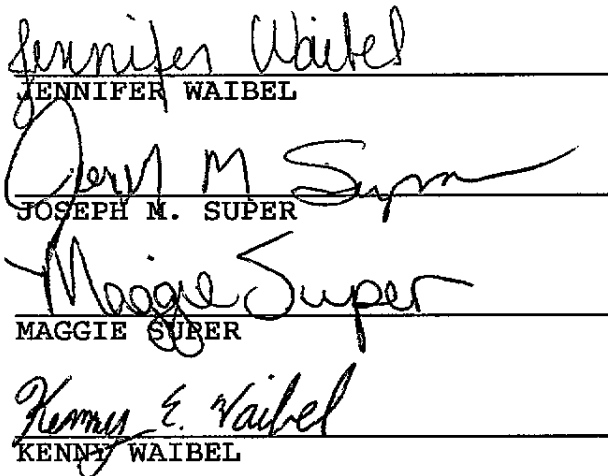 Jennifer Waibel
JENNIFER WAIBEL
M Super
JOSEPH M. SUPER
Maggie Super
MAGGIE SUPER
Kenny E. Waibel
KENNY WAIBEL